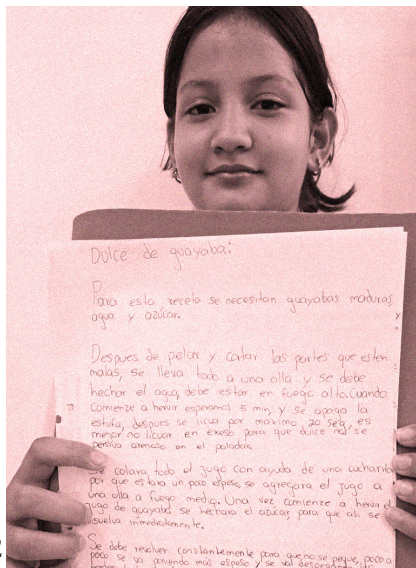 Dulce de guayaba:
Para esta receta se necesitan guayabas maduras,
agua y azúcar.
Despues de pelar y cortar las partes que esten
malas, se lleva todo a una olla y se debe
hechar el agua, debe estar en fuego alto. Cuando
comienze a hervir esperamos 5 min, y se apaga la
estufa, despues se licua por maximo 20 seg, es
mejor no licuar en exeso para que dulce no se
persiva arenoso en el paladar.
Se colara todo el jugo con ayuda de una cucharita
por que estara un poco espeso, se agregara el jugo a
una olla a fuego medio. Una vez comienze a hervir el
jugo de guayaba se hechara el azúcar, para que asi se
disuelva inmediatamente.
Se debe revolver constantemente para que no se pegue, poco a
poco se va poniendo más espeso y se va